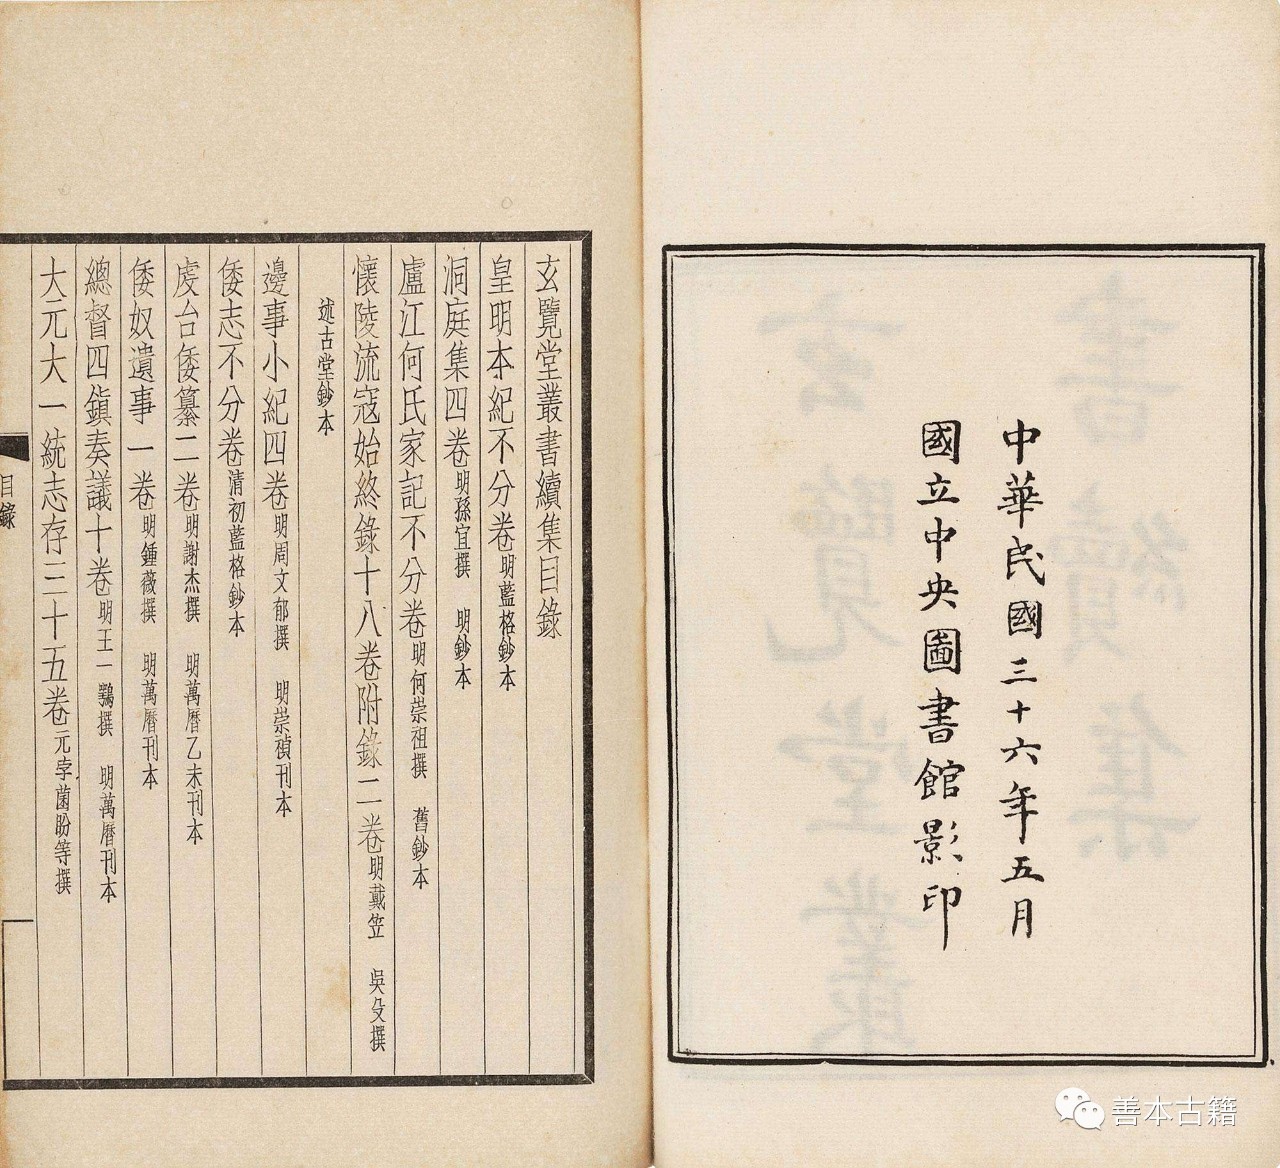 中華民國三十六年五月
國立中央圖書館影印
玄覽堂叢書續集目錄
皇明本紀不分卷明藍格鈔本
洞庭集四卷明孫宜撰　明鈔本
廬江何氏家記不分卷明何崇祖撰　舊鈔本
懷陵流寇始終錄十八卷附錄二卷明戴笠　吳殳撰
述古堂鈔本
邊事小紀四卷明周文郁撰　明崇禎刊本
倭志不分卷清初藍格鈔本
虔台倭纂二卷明謝杰撰　明萬曆乙未刊本
倭奴遺事一卷明鍾薇撰　明萬曆刊本
總督四鎮奏議十卷明王一鶚撰　明萬曆刊本
大元大一統志存三十五卷元孛菌盼等撰
目錄
善本古籍